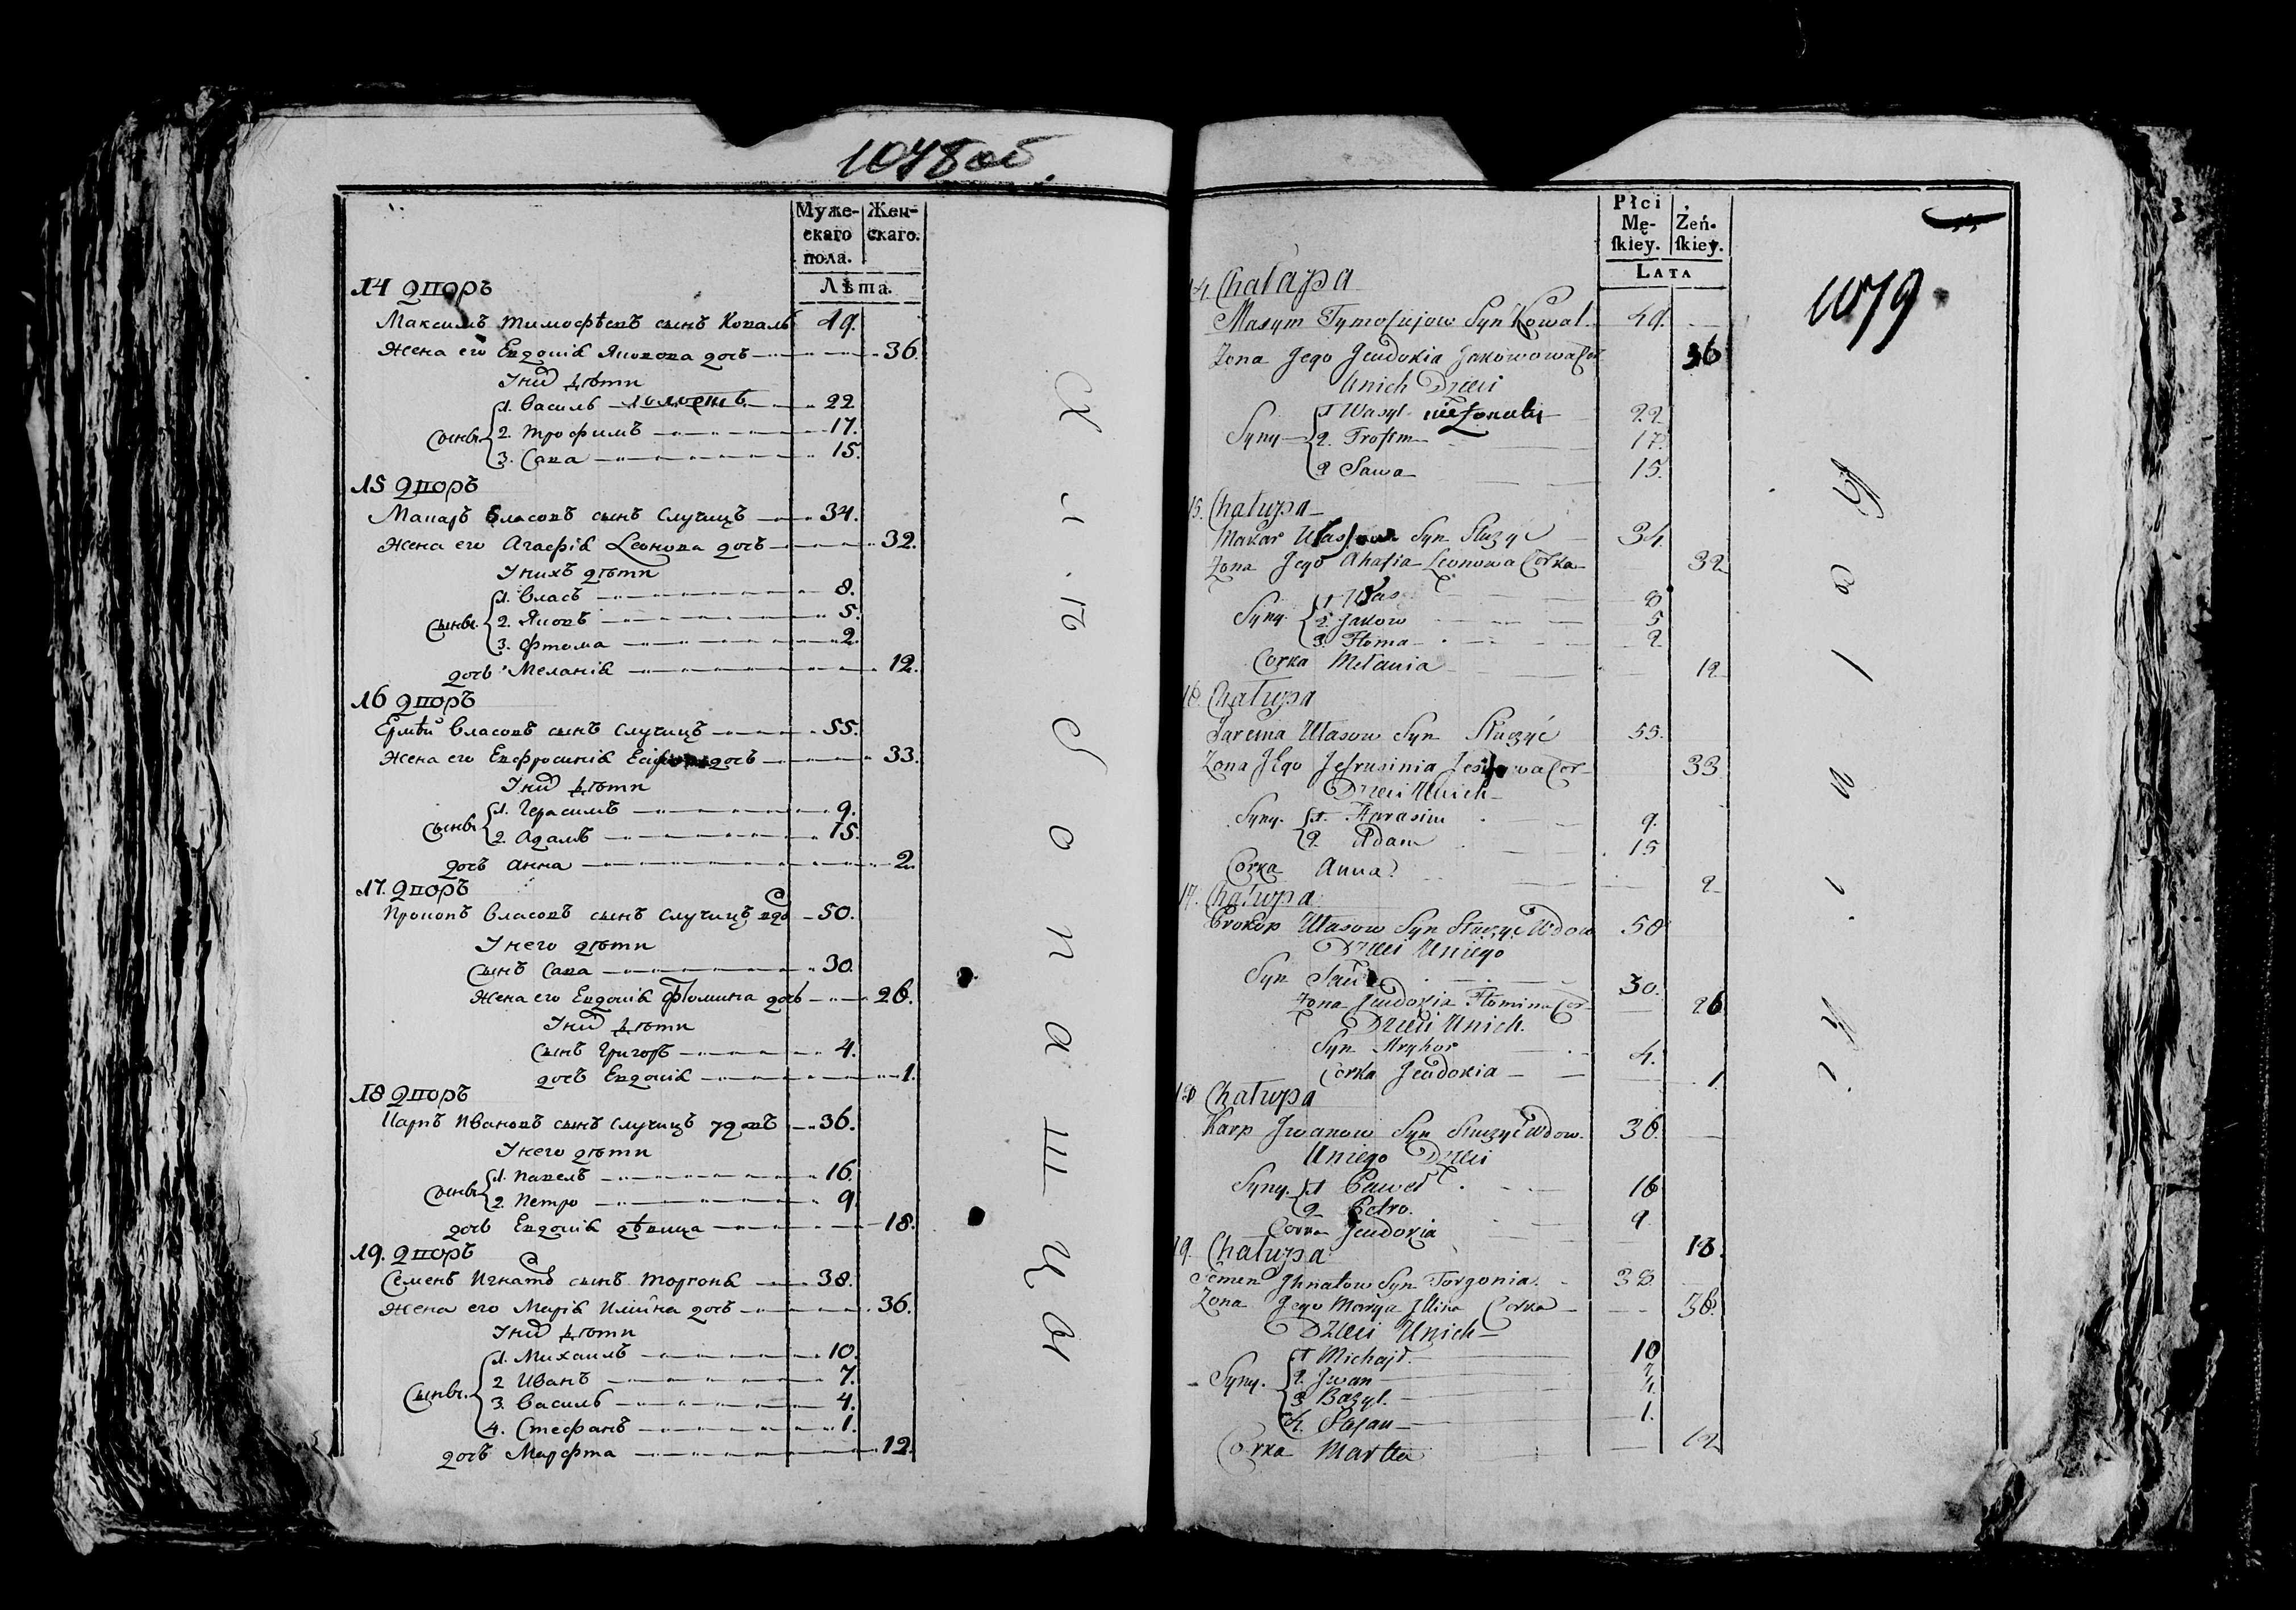 1078 об.
Муже-
скаго
пола.
Жен-
скаго.
Лѣта.
14 дворъ
Максимъ Тимофѣевъ сынъ Коваль 49.
Жена его Евдокия Яковова дочь 36.
У них дѣти
Сыны 1. Василь холостъ 22
2. Трофимъ 17.
3. Сава 15.
15 дворъ
Макаръ Власовъ сынъ Случицъ 34.
Жена его Агафия Леонова дочь 32.
У нихъ дѣти
Сыны 1. Власъ 8.
2. Яковъ 5.
3. Фтома 2.
дочь Мелания 12.
16 дворъ
Ермѣй Власовъ сынъ Случицъ 55.
Жена его Евфросиния дочь 33.
У них дѣти
Сыны 1. Герасимъ 9.
2. Адамъ 15.
дочь Анна 2.
17. дворъ
Прокопъ Власовъ сынъ Случицъ вдов 50.
У него дѣти
Сынъ Сава 30.
Жена его Евдокия Фтомина дочь 26.
У них дѣти
Сынъ Григоръ 4.
дочь Евдокия 1.
18 дворъ
Карпъ Ивановъ сынъ Случицъ удовъ 36.
У него дѣти
Сыны 1. Павелъ 16.
2. Петро 9.
дочь Евдокия дѣвица 18.
19. дворъ
Семенъ Игнатов сынъ Торгоня 38.
Жена его Мария Илийна дочь 36.
У них дѣти
Сыны. 1. Михаилъ 10.
2 Иванъ 7.
3. Василь 4.
4. Стефанъ 1.
дочь Марфта 12.
Płci
Mę-
ſkiey.
Żeń-
ſkiey.
LATA
1079.
14. Chałupa
Maxym Tymofiejow Syn Kowal 49.
Zona Jego Jeudokia Jakowowa Cor 36
Unich Dzieci
Syny 1 Wasyl nieżonaty 22
2. Trofim 17.
3 Sawa 15.
15. Chałupa
Makar Syn Słuczyc 34.
Zona Jego Ahafia Leonowa Corka 32
Syny. 1 Ułas 8
2. Jakow 5
3. Ftoma 2.
Corka Melania 12
16. Chałupa
Jarema Ułasow Syn Słuczyć 55.
Zona Jego Jefrusinia Cor 33
Dzieci Unich
Syny. 1. Harasim 9.
2. Adam 15
Corka Anna 2
17. Chałupa
Prokop Ułasow Syn Słuczyc Wdow 50
Dzieci Uniego
Syn Saw 30.
Zona Jeudokia Ftomina Cor 26
Dzieci Unich.
Syn Hryhor 4.
Corka Jeudokia 1
18 Chałupa
Karp Jwanow Syn Słuczyć Wdow. 36.
Uniego Dzieci
Syny. 1 Paweł 16
2 Petro. 9
Corka Jeudokia 18.
19. Chałupa
Semen Jhnatow Syn Torgonia. 38
Zona Jego Marya Jllina Corka 36.
Dzieci Unich
Syny. 1 Michajł. 10
2. Jwan 7
3 Bazyl. 4.
4. Stefan 1.
Corka Marta 12